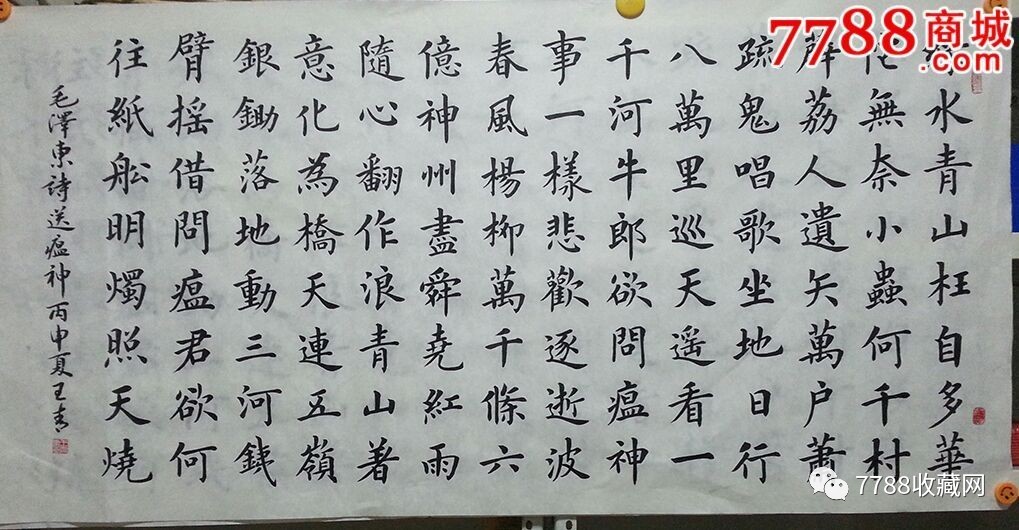 7788商城
.com
綠水青山枉自多華
佗無奈小蟲何千村
薜荔人遺矢萬戶蕭
疏鬼唱歌坐地日行
八萬里巡天遥看一
千河牛郎欲問瘟神
事一樣悲歡逐逝波
春風楊柳萬千條六
億神州盡舜堯紅雨
隨心翻作浪青山著
意化為橋天連五嶺
銀鋤落地動三河銕
臂摇借問瘟君欲何
往紙舩明燭照天燒
毛澤東詩送瘟神丙申夏王
7788收藏网